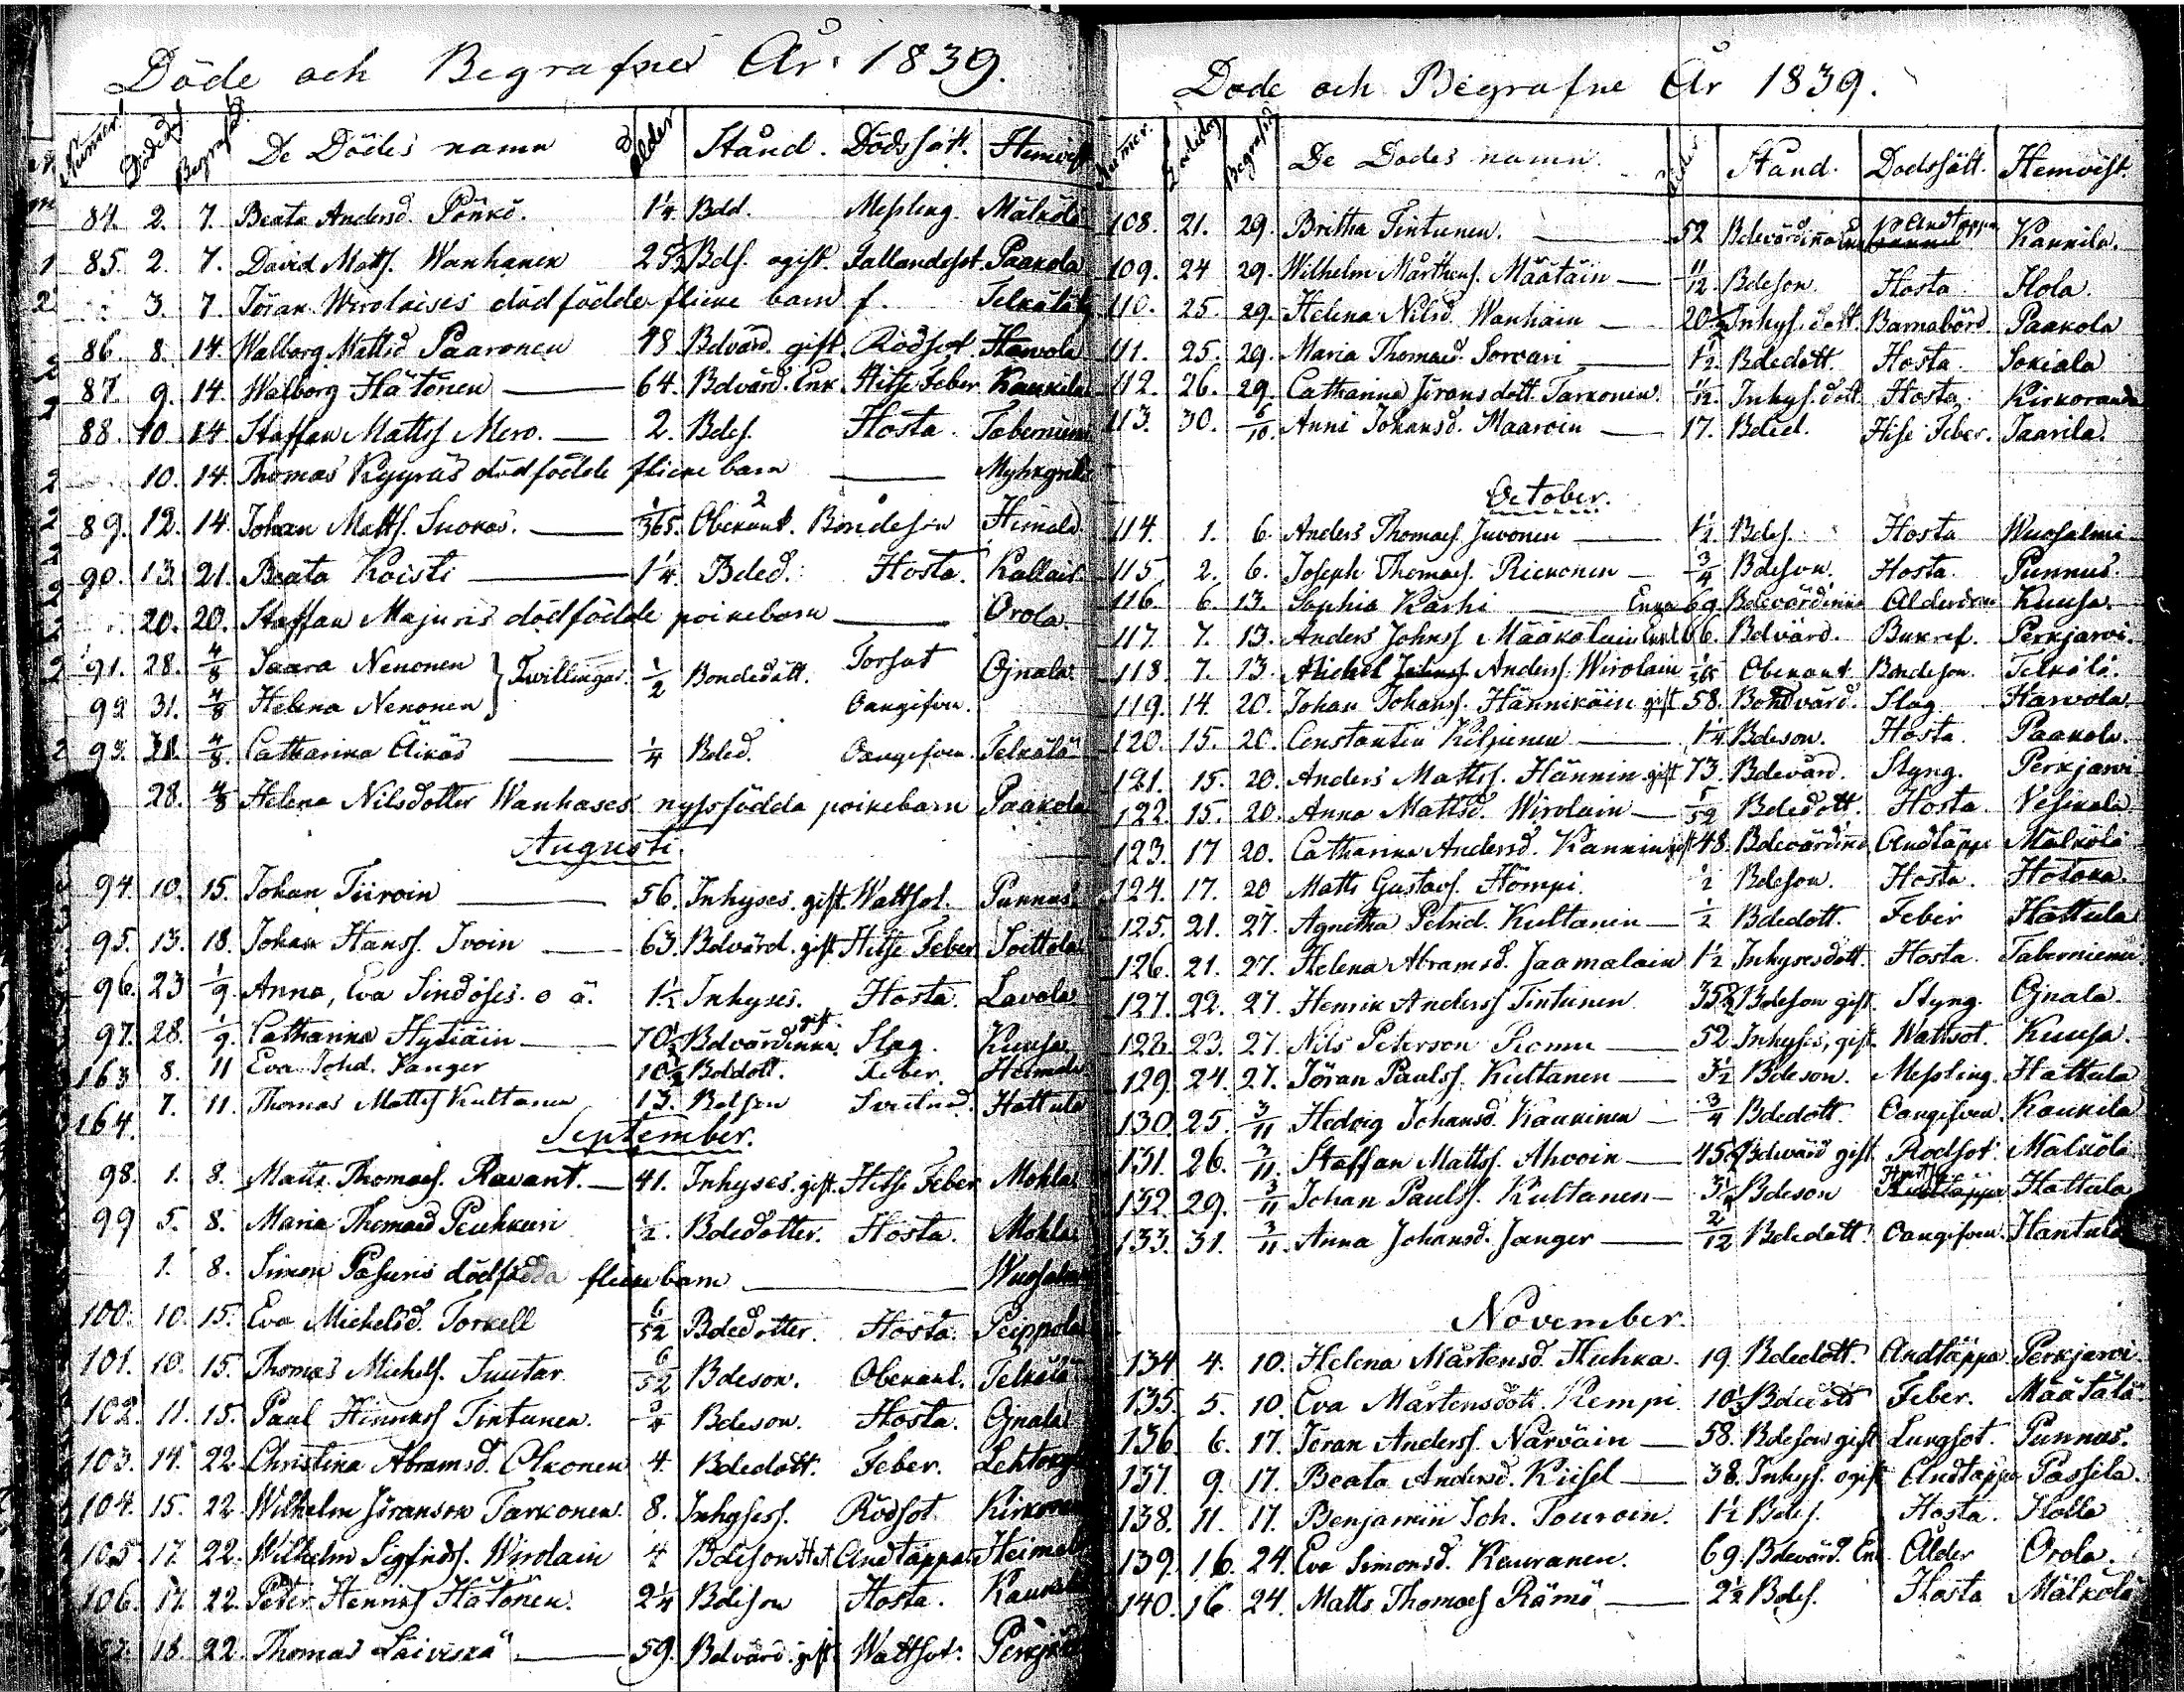 Döde och Begrafne År 1839.
Numer. Dödedag Begrafnd. De Dödes namn Ålder Stånd. Dödssätt. Hemvist
84. 2. 7. Beata Andersd. Pönkö. 1¼ Bdd. Messling. Mälkölä
85. 2. 7. David Matts. Wanhanen 25½ Bdes. ogift. Fallandesot Paakola
3. 7. Jöran Wirolaises dödfödde flicke barn f. Telkälä
86. 8. 14. Walborg Mattsd Paaronen 48 Bdvärd. gift. Rödsot. Harvola
87. 9. 14. Walborg Hätönen 64. Bdvärd. Enk Hitse Feber Kaukila
88. 10. 14 Staffan Mattss Mero. 2. Bdes. Hosta. Taberniemi
10. 14. Thomas Kyyräs dödfödde flicke barn
89. 12. 14. Johan Matts. Suokas. 2/365. Obekant. Bondeson Heimala
90. 13. 21. Beata Koisti 1¼ Bded. Hosta. Kallais
20. 20. Staffan Majuris dödfödde poikebarn Orola
91. 28. 4/8 Saara Nenonen } Twillingar. ½ Bondedött. Torsot Ojnala
92 31. 4/8 Helena Nenonen Oangifven.
93. 31. 4/8. Catharina Äikäs ¼ Bded. Oangifven. Telkälä
28. 4/8 Helena Nilsdotter Wanhases nyssfödda poikebarn Paakola
Augusti.
94. 10. 15. Johan Tiiroin 56. Inhyses. gift. Wattsot. Punnus.
95. 13. 18. Johan Hanss. Ivoin 63. Bdvärd. gift Hitse Feber Soittola
96. 23 1/9. Anna, Eva Sindöses. o ä. 1½ Inhyses. Hosta. Lavola
97. 28. 1/9. Catharina Hytiäin 70½ Bdvärdinna. gift Slag. Kuusa
163 8. 11 Eva Johd. Janger 10½ Bdedott. Feber. Heimala
164. 7. 11. Thomas Mattss Kultanen 13. Bdeson Hattula
September.
98. 1. 8. Matts Thomass. Ravant. 41. Inhyses. gift. Hitse Feber Mohla
99 5. 8. Maria Thomasd Peuhkuri ½. Bdedotter. Hosta. Mohla
1. 8. Simon Pasuris dödfödda flicke barn
100. 10. 15. Eva Michelsd. Torkell 6/52 Bdedotter. Hosta. Peippola
101. 10. 15. Thomas Michels. Suutar 6/52 Bdeson. Obekant. Telkälä
102. 11. 15. Paul Hinriss Tintunen. 3/4 Bdeson. Hosta. Ojnala
103. 14. 22. Christina Abramsd. Olkonen 4. Bdedott. Feber.
104. 15. 22 Wilhelm Jöranson Tarkonen. 8. Inhysess. Rödsot. Kirkoranda
105 17. 22. Wilhelm Sigfrids. Wirolain Bdeson Andtäppa Heimala
106. 17. 22. Peter Henriss Hätönen. 2¼ Bdeson Hosta.
18. 22. Thomas Läiviskä 59. Bdvärd. gift. Wattsot.
Döde och Begrafne År 1839.
Numer. Dödedag Begrafnd De Dödes namn. Ålder Stånd. Dödssätt. Hemvist.
108. 21. 29. Britha Tintunen. 52 Bdevärdinna Enk Andtäppa Kaukila.
109. 24 29. Wilhelm Mårthens. Määtäin 11/12. Bdeson. Hosta Hola.
110. 25. 29. Helena Nilsd. Wanhain 20½ Inhys. dott. Barnabörd. Paakola
111. 25. 29. Maria Thomasd. Sorvari 1½. Bdedott. Hosta. Sokiala
112. 26. 29. Catharina Jöransdott. Tarkonen. 11/12. Inhys. dott Hosta. Kirkoranda
113. 30. 6/10. Anni Johansd. Maaroin 17. Bded. Hitse Feber. Taarila.
October.
114. 1. 6. Anders Thomass. Juvonen 1½. Bdes. Hosta Wuosalmi
115 2. 6. Joseph Thomass. Rickonen 3/4 Bdeson. Hosta. Punnus.
116. 6. 13. Sophia Kärhi Enka 69. Bdevärdinna Ålderdom Kuusa.
117. 7. 13. Anders Johnss Määkäläin Enkl 66. Bdvärd. Perkjarvi.
118. 7. 13. Michel Anderss. Wirolain Obekant Bondeson. Telkälä.
119. 14. 20. Johan Johanss. Hännikäin gift 58. Bondvärd. Slag. Harvola
120. 15. 20. Constantin Kilpinen 1¼ Bdeson. Hosta. Paakola.
121. 15. 20. Anders Mattss. Hännin gift 73. Bdevärd. Styng. Perkjarvi
122. 15. 20. Anna Mattsd. Wirolain 5/52 Bdedott. Hosta. Vesikala
123. 17 20. Catharina Andersd. Kannin gift 48. Bdevärdinna Andtäppa Mälkölä
124. 17. 20 Matts Gustavs. Hömpi. ½ Bdeson. Hosta. Hotaka.
125. 21. 27. Agnetha Petrsd. Kultanin ½ Bdedott. Feber Hattula
126. 21. 27. Helena Abramsd. Jaamalain 1½ Inhysesdott. Hosta. Taberniemi
127. 22. 27. Henrik Anderss Tintunen 35½ Bdeson gift Styng. Ojnala.
128. 23. 27. Nils Peterson Romu 52 Inhyses, gift Wattsot. Kuusa.
129. 24. 27. Jöran Paulss. Kultanen 3½ Bdeson. Messling. Hattula
130. 25. 3/11 Hedvig Johansd. Kaukinen 3/4 Bdedott. Oangifven. Kaukila
131. 26. 3/11. Staffan Mattss. Ahvoin 45½ Bdevärd gift Rödsot. Mälkölä
132. 29. 3/11 Johan Paulss. Kultanen 3½ Bdeson Andtäppa Hattula
133. 31. 3/11. Anna Johansd. Janger 2/12 Bdedott. Oangifven. Hantula
November.
134 4. 10. Helena Mårtensd. Huhka. 19. Bdedott. Andtäppa Perkjarvi.
135. 5. 10. Eva Mårtensdott. Kempi. 10½ Bdedott Feber. Määtälä
136. 6. 17. Jöran Anderss. Närväin 58. Bdeson gift Lungsot. Punnus.
137. 9. 17. Beata Andersd. Kiisel 38. Inhys. ogift Andtäppa Passila.
138. 11. 17. Benjamin Joh. Touroin. 1½ Bdes. Hosta. Holla
139. 16. 24. Eva Simonsd. Keuranen. 69. Bdevärd. Enk Ålder Orola.
140. 16 24. Matts Thomass Rämö 2½ Bdes. Hosta Mälkölä